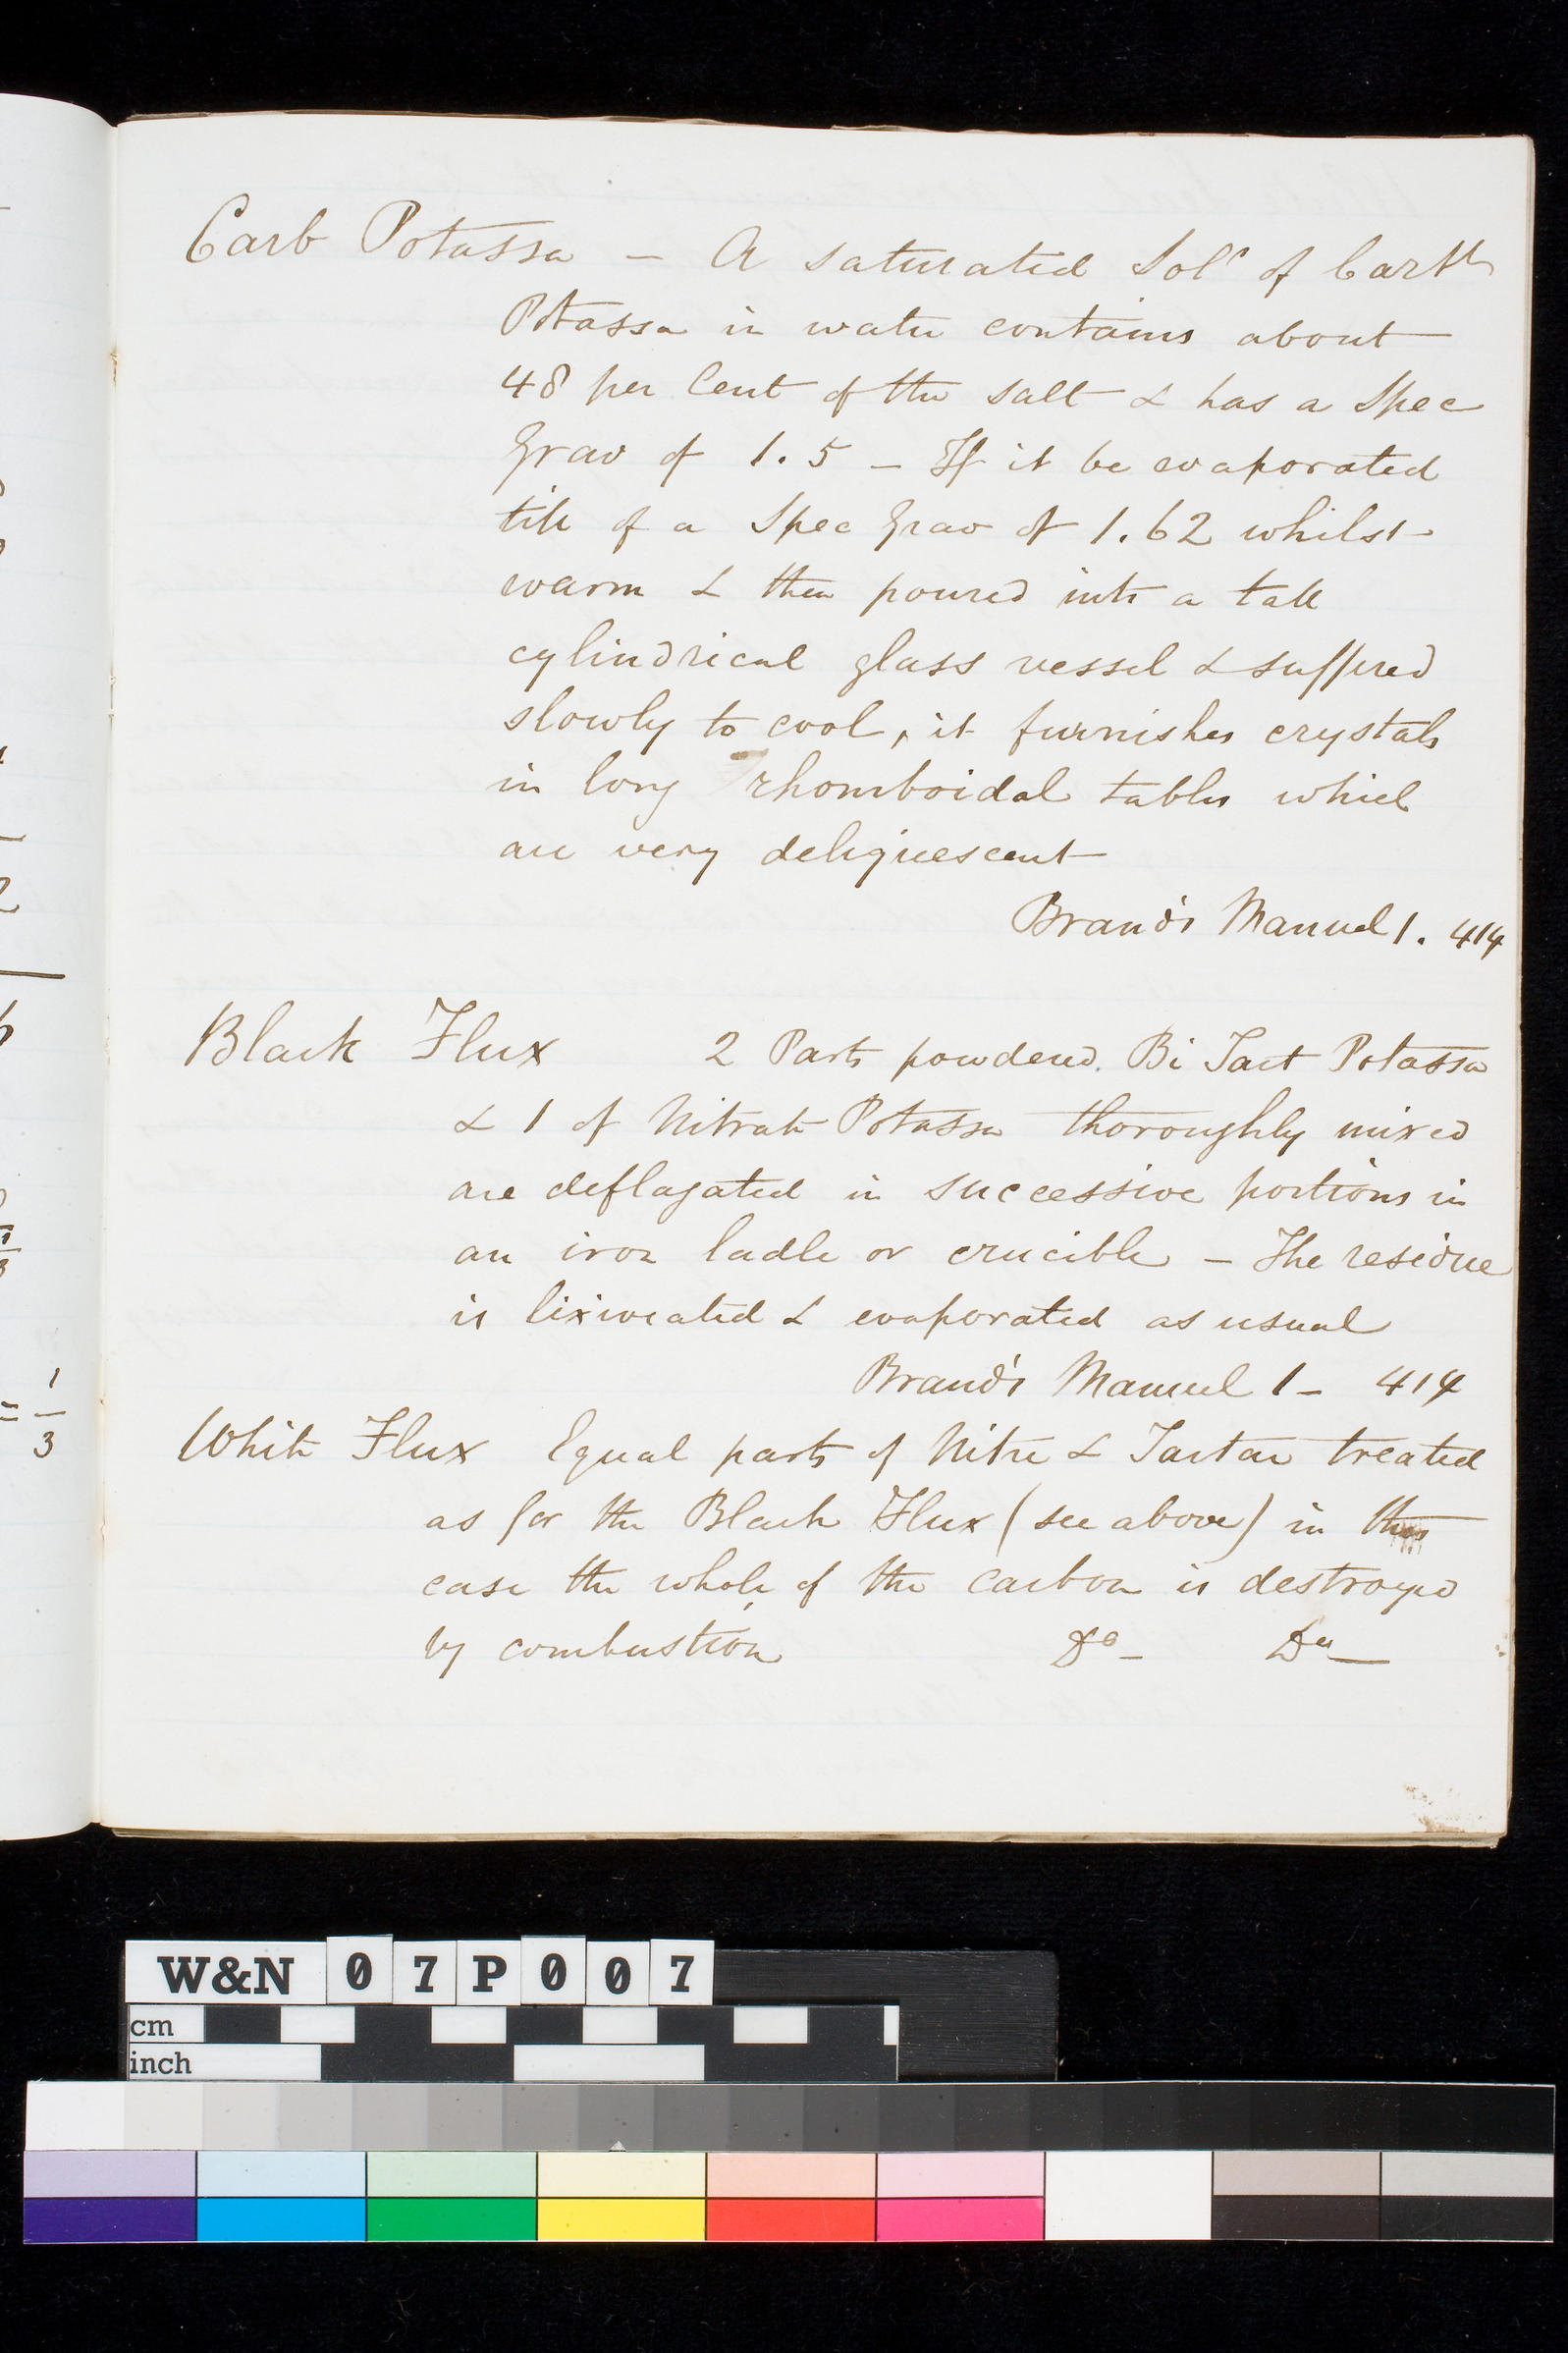 Carb Potassa — A saturated Solⁿ of Carbᵗᵉ
Potassa in water contains about
48 per Cent of the salt & has a Spec
Grav of 1.5 — If it be evaporated
till of a Spec Grav of 1.62 whilst
warm & then poured into a tall
cylindrical glass vessel & suffered
slowly to cool, it furnishes crystals
in long rhomboidal tables which
are very deliquescent
Brand's Manual 1. 414
Black Flux 2 Parts powdered Bi Tart Potassa
& 1 of Nitrate Potassa thoroughly mixed
are deflagated in successive portions in
an iron ladle or crucible — The residue
is lixiviated & evaporated as usual
Brand's Manual 1 — 414
White Flux Equal parts of Nitre & Tartar treated
as for the Black Flux (see above) in this
case the whole of the carbon is destroyed
by combustion Dº — Dº —
= 1
3
W&N 07P007
cm
inch